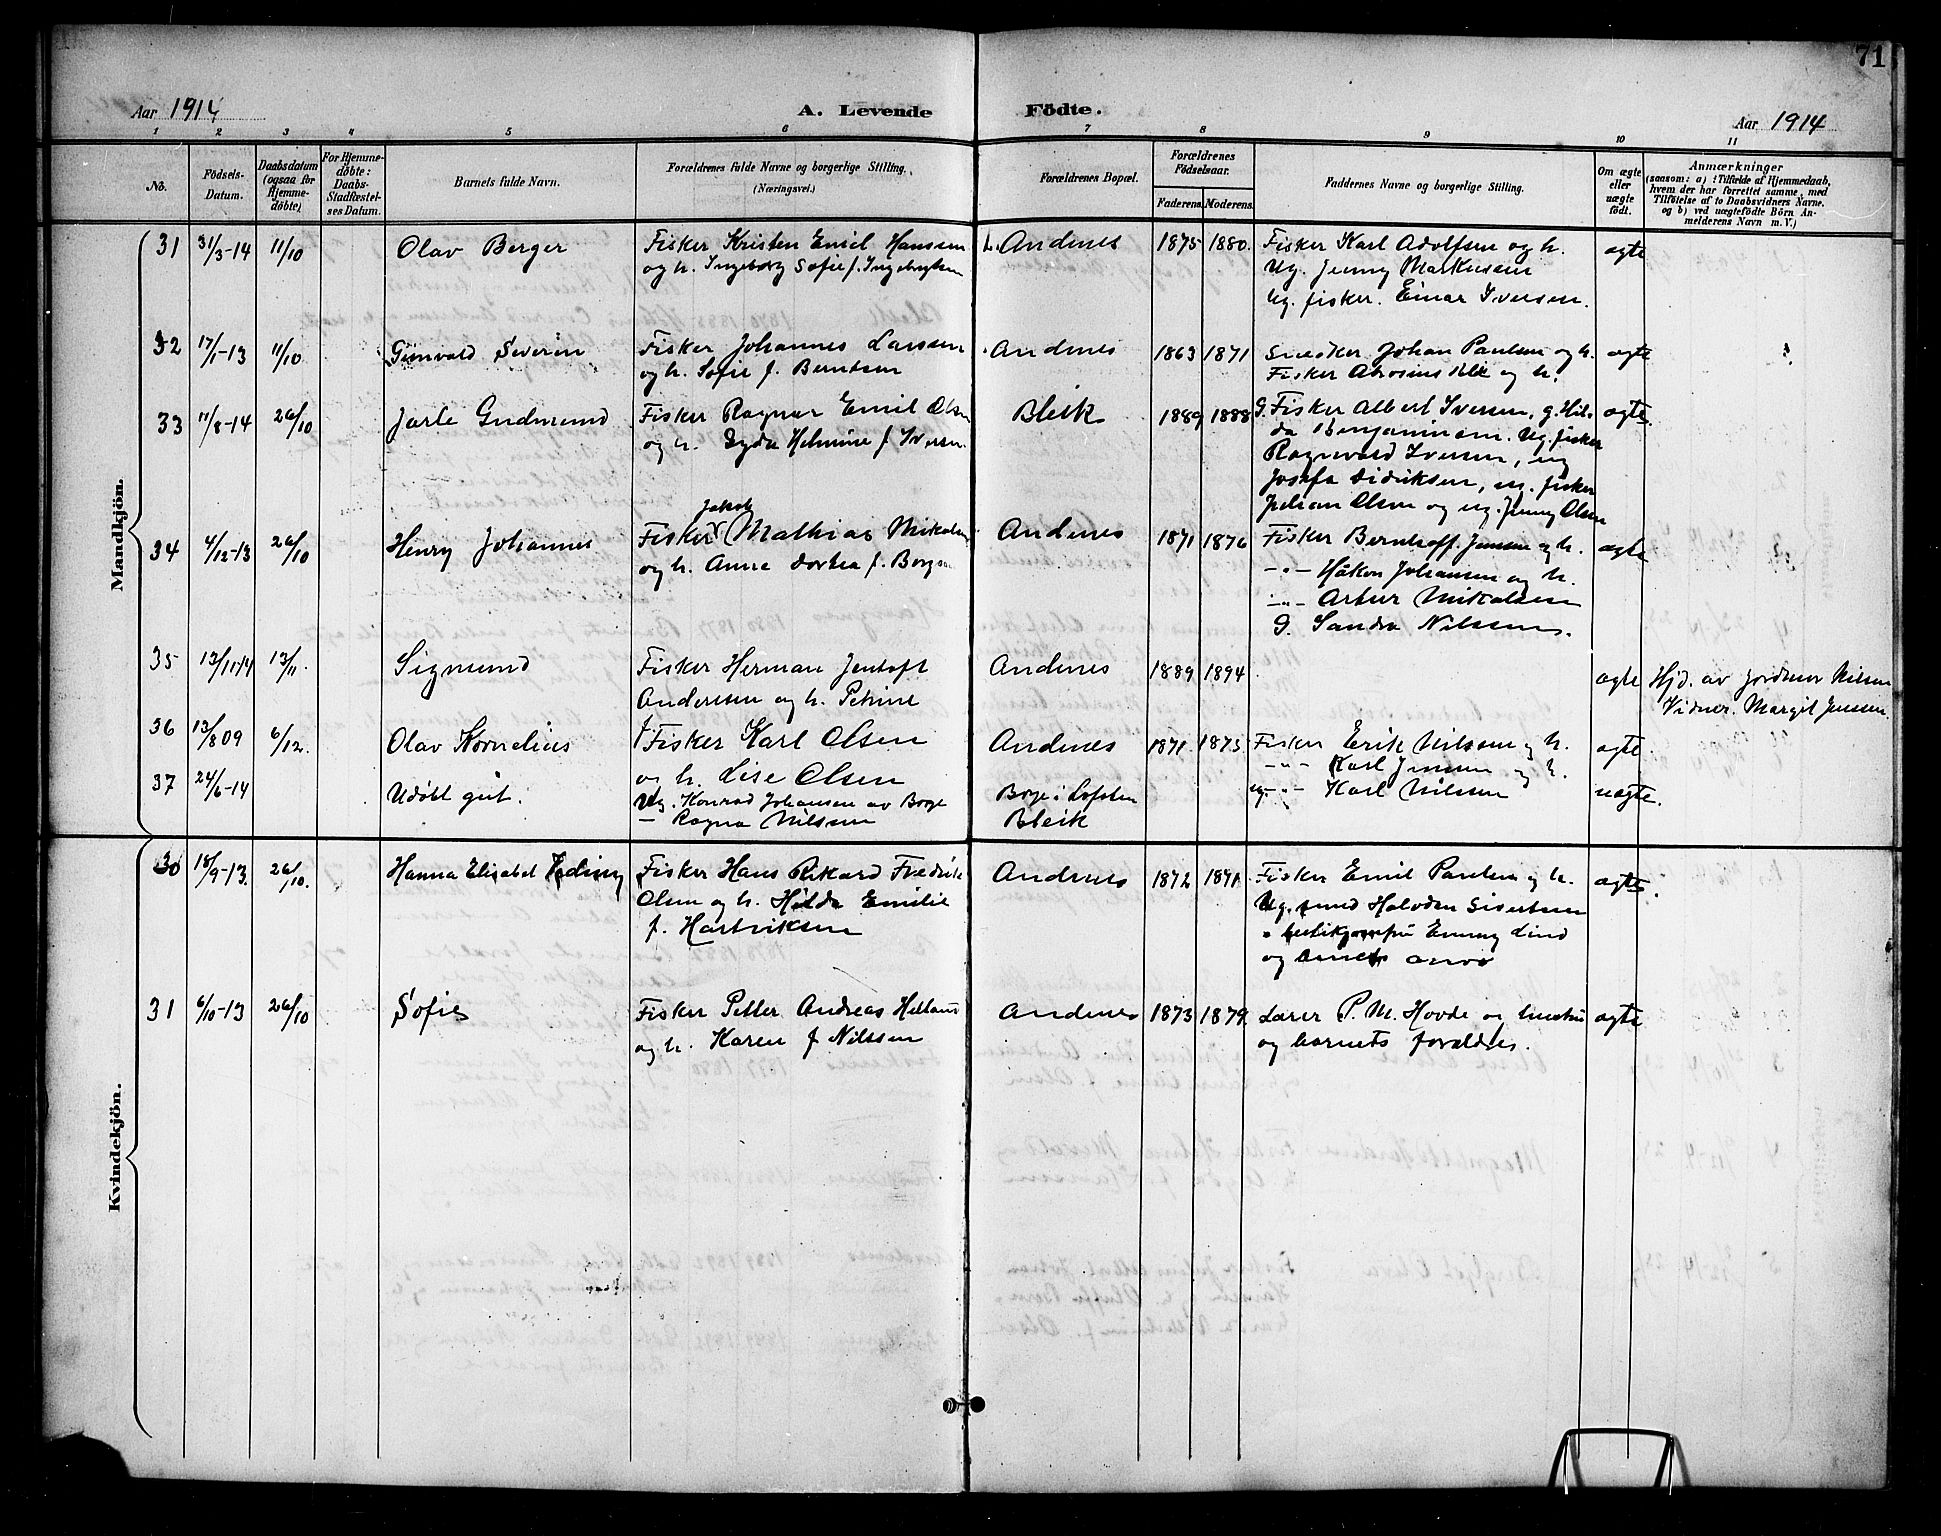 71
Aar 1914 A. Levende Födte. Aar 1914
1 2 3 4 5 6 7 8 9 10 11
No.
Födsels-Datum.
Daabsdatum (ogsaa for Hjemme-döbte)
For Hjemme-döbte: Daabs-Stadfæstel-ses Datum.
Barnets fulde Navn.
Forældrenes fulde Navne og borgerlige Stilling. (Næringsvei.)
Forældrenes Bopæl.
Forældrenes Födselsaar.
Faderens. Moderens.
Faddernes Navne og borgerlige Stilling.
Om ægte eller uægte født.
Anmærkninger
(saasom: a) i Tilfælde af Hjemmedaab,
hvem der har forrettet samme, med
Tilföielse af to Daabsvidners Navne.
og b) ved uægtefödte Börn An-
melderens Navn m. V.)
Mandkjön.
31 31/3-14 11/10 Olav Berger Fisker Kristen Emil Hanssen Andenes 1875 1880. Fisker Karl Adolfsen og h. ægte
og h. Ingeborg Sofie f. Ingebrigtsen Ug. Jenny Markussen
Ug. fisker. Einar Iversen.
32 17/1-13 11/10. Severin Fisker Johannes Larssen Andenes 1863 1871 Snedker Johan Paulsen og h. ægte
og h. Sofie f. Berntsen Fisker og h.
33 11/8-14 26/10 Jarle Gudmund Fisker Ragnar Emil Olsen Bleik 1889 1888 G. Fisker Albert Iversen, g. Hil- ægte.
og h. Gyda Helmine f. Iversen da Benjaminsen. Ug. fisker
Ragnvald Iversen, ug
Josefa Didriksen, ug. fisker
Julian Olsen og ug. Jenny Olsen
Jakob
34 4/12-13 26/10 Henry Johannes Fisker Mathias Mikalsen Andenes 1871 1876 Fisker Bernhoff Jensen og h. ægte
og h. Anna Dortea f. -"- Håkon Johansen og h.
-"- Artur Mikalsen
G. Sandra Nilssen.
35 13/11-14 13/11. Sigmund Fisker Herman Jentoft Andenes 1889 1894 ægte Hjd. av Jordmor Nilsen
Andersen og h. Petrine Vidner. Margit Jenssen.
36 13/8 09 6/12. Olav Kornelius Fisker Karl Olsen Andenes 1871. 1875 Fisker Erik Nilssen og h. ægte
og h. Lise Olsen -"- Karl Jenssen og h.
37 24/6-14 Udøbt gut. Ug. Konrad Johansen av Borge Borge i Lofoten ug -"- Karl Nilssen uægte.
— Ragna Nilssen Bleik
Kvindekjön.
30 18/9-13. 26/10. Hanna Elisabet Fisker Hans Rikard Fredrik Andenes 1872 1871. Fisker Emil Paulsen og h. ægte.
Olsen og h. Hilda Emilie Ug. Halvdan Sivertsen
f. Hartviksen Emmy Lind
og
31 6/10-13 26/10 Sofie Fisker Petter Andreas Andenes 1873 1879. Lærer P. M. Hovde og hustru ægte
og h. Karen f Nilssen og barnets forældre.